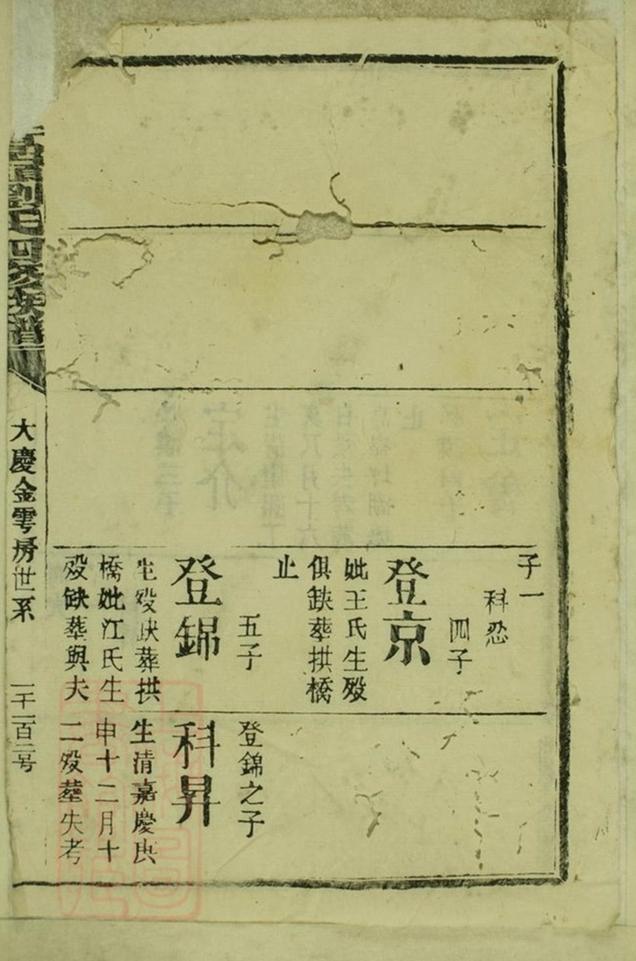 子一
科忍
四子
登京
妣王氏生殁
俱缺葬拱橋
止
五子
登錦
生殁缺葬拱
橋妣江氏生
殁缺葬與夫
登錦之子
科昇
生清嘉慶庚
申十二月十
二殁塟失考
劉氏四修族譜
大慶金雩房世系
一千一百二号